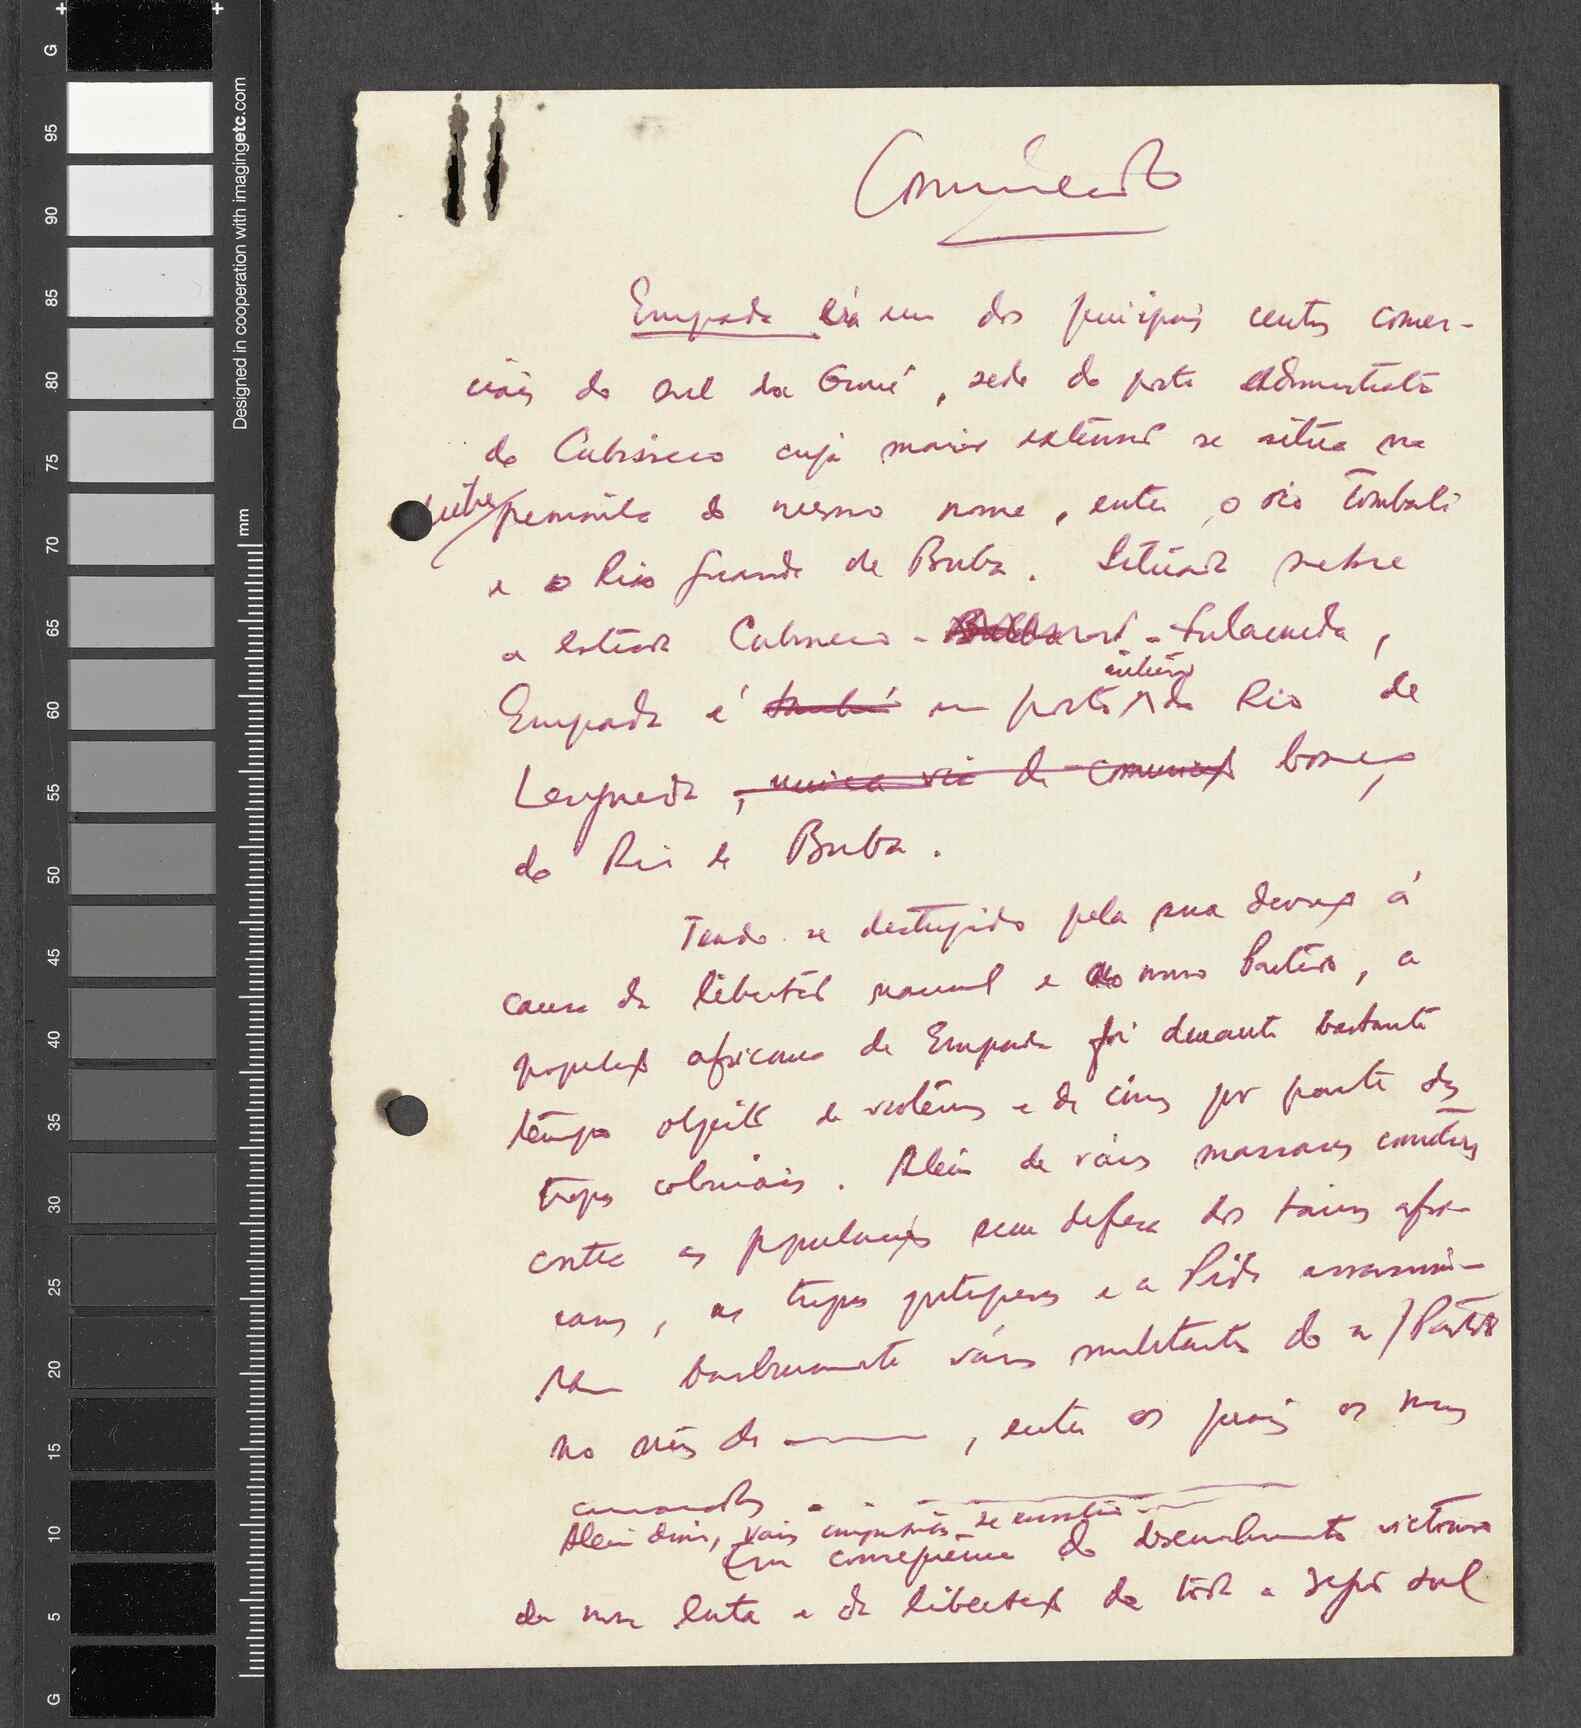 Comunicado
Empada era um dos principais centros comer-
ciais do sul da Guiné, sede do posto administrativo
de Cubisseco cuja maior extensão se situa na
península do mesmo nome, entre o rio Tombali
e o Rio Grande de Buba. Situada sobre
a estrada Cubisseco - - Fulacunda,
Empada é também um porto do Rio de
Lenguedé, única via de comunicação braço
do Rio de Buba.
Tendo-se distinguido pela sua devoção á
causa da libertação nacional e ao nosso Partido, a
população africana de Empada foi durante bastante
tempo objecto de violências e de crimes por parte das
tropas coloniais. Além de vários massacres cometidos
contra as populações sem defesa dos bairros afri-
canos, as tropas portuguesas e a Pide assassina-
ram barbaramente vários militantes do n/Partido
no mês de , entre os quais os nossos
camaradas
Além disso, vários
Em consequência do desenvolvimento victorioso
da nossa luta e da libertação de toda a região sul
G
95
90
85
80
75
70
65
60
55
50
45
40
35
30
25
20
15
10
5
G
mm
Designed in cooperation with imagingetc.com